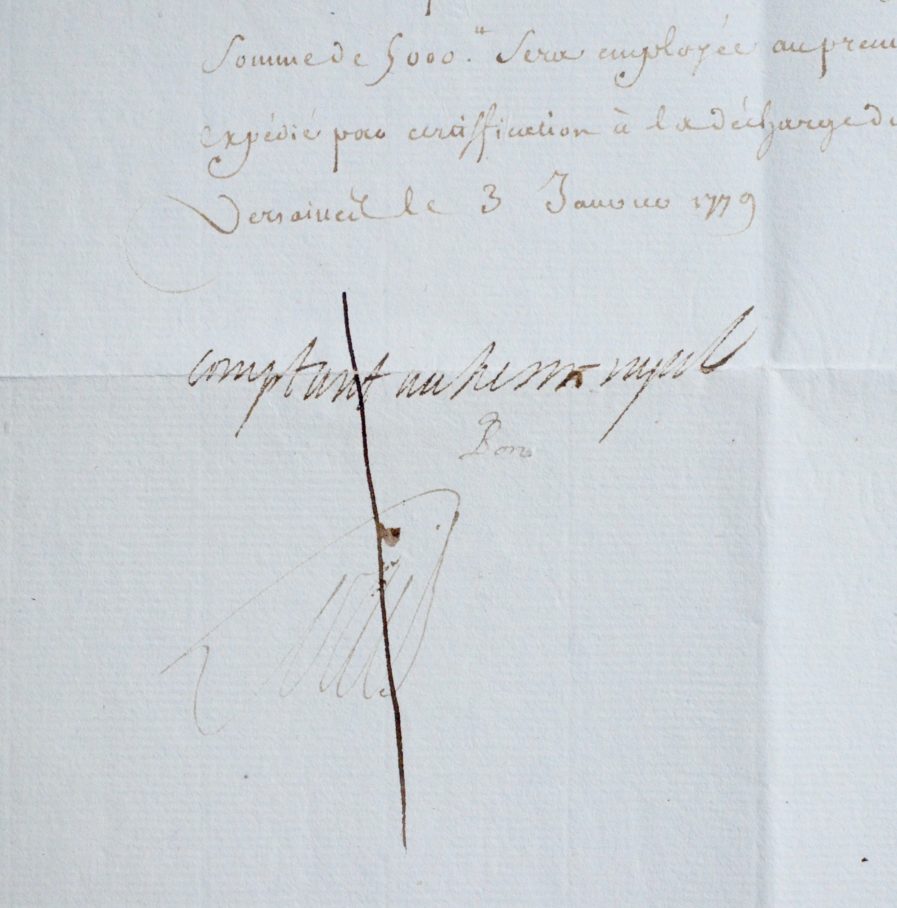 Somme de 5000.ᵗᵗ Sera employée au prem
expédié par certiffication à la décharge du
Versailles le 3 Janvier 1779
comptant au tresor royal
Bon
Louis